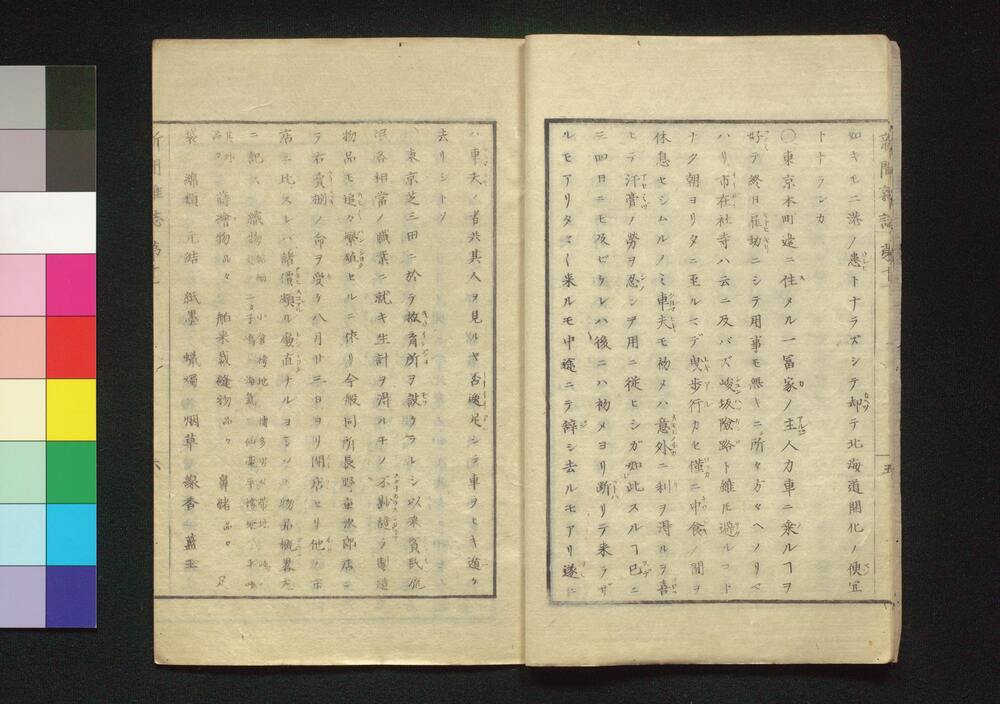 如キモ二港ノ患トナラズシテ却テ北海道開化ノ便宜
トナランカ
〇東京本町辺ニ住メル一冨家ノ主人力車ニ乗ルヿヲ
好テ終日奔動ニシテ用事モ無キニ所々方々ヘノリマハリ
ハリ市在社寺ハ云ニ及バズ峻坂険路ト雖ℸ避ルコト
ナク朝ヨリ夕ニ至ルマデ曳歩行カセ僅ニ中食ノ間ヲ
休息セシムルノミ車夫モ初メハ意外ニ利ヲ得ルヲ喜
ヒテ汗膏ノ労ヲ忍ンデ用ニ従ヒシガ如此スルヿ已ニ
三四日ニモ及ビケレハ後ニハ初メヨリ断リテ来ラザ
ルモアリタマ〱来ルモ中途ニテ辞シ去ルモアリ遂ニ
五
ハ車夫ノ者共其人ヲ見ルヤ否逸足シテ車ヲヒキ遁ケ
去リシトゾ
〇東京芝三田ニ於テ救育所ヲ設ケラレシ以来貧民
各相当ノ職業ニ就キ生計ヲ得ルモノ不尠
物品モ追々繁殖セルニ依リ今般同所長野重次郎店ニ
テ右売捌ノ命ヲ受ケ八月廿三日ヨリ開店セリ他ノ市
店ニ比スレバ諸価頗ル廉直ナルヨシソノ物品概略左
ニ記ス 織物
其外品々 蒔絵物品々 舶来裁縫物品々 鼻緒品々 足
袋 綿類 元結 紙墨 蝋燭 烟草 線香 藍玉
新聞雑誌第十
六